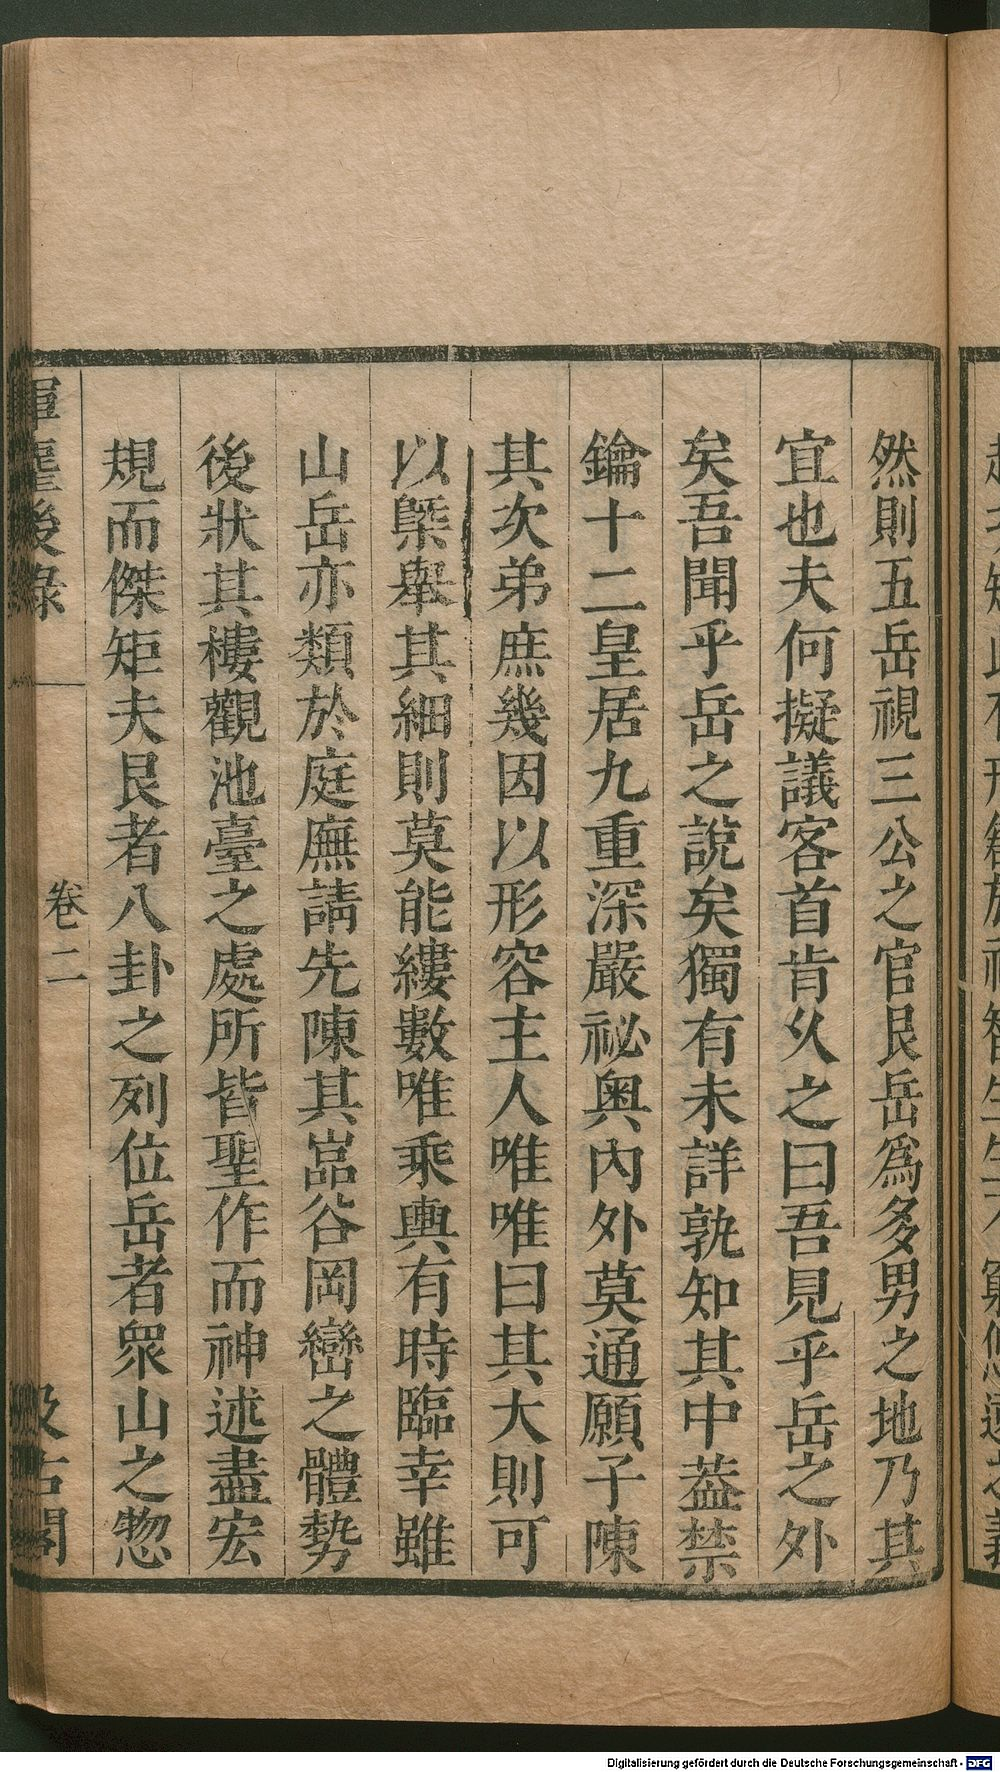 然則五岳視三公之官艮岳爲多男之地乃其
宜也夫何擬議客首肯乆之曰吾見乎岳之外
矣吾聞乎岳之說矣獨有未詳孰知其中葢禁
鑰十二皇居九重深嚴祕奧內外莫通願子陳
其次弟庶幾因以形容主人唯唯曰其大則可
以槩舉其細則莫能縷數唯乘輿有時臨幸雖
山岳亦類於庭廡請先陳其嵓谷岡巒之體勢
後狀其樓觀池臺之處所皆聖作而神述盡宏
規而傑矩夫艮者八卦之列位岳者眾山之惣
揮麈後錄
卷二
汲古閣
Digitalisierung gefördert durch die Deutsche Forschungsgemeinschaft - DFG